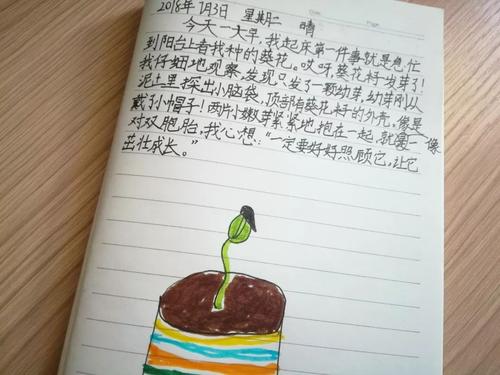 2018年 7月3日 星期二 晴
今天一大早,我起床第一件事就是急忙
到阳台上看我种的葵花。哎呀,葵花籽发芽了!
我仔细地观察,发现只发了一颗幼芽,幼芽刚从
泥土里探出小脑袋,顶部有葵花籽的外壳,像是
戴了小帽子!两片小嫩芽紧紧地抱在一起,就像一
对双胞胎,我心想:“一定要好好照顾它,让它
茁壮成长。”